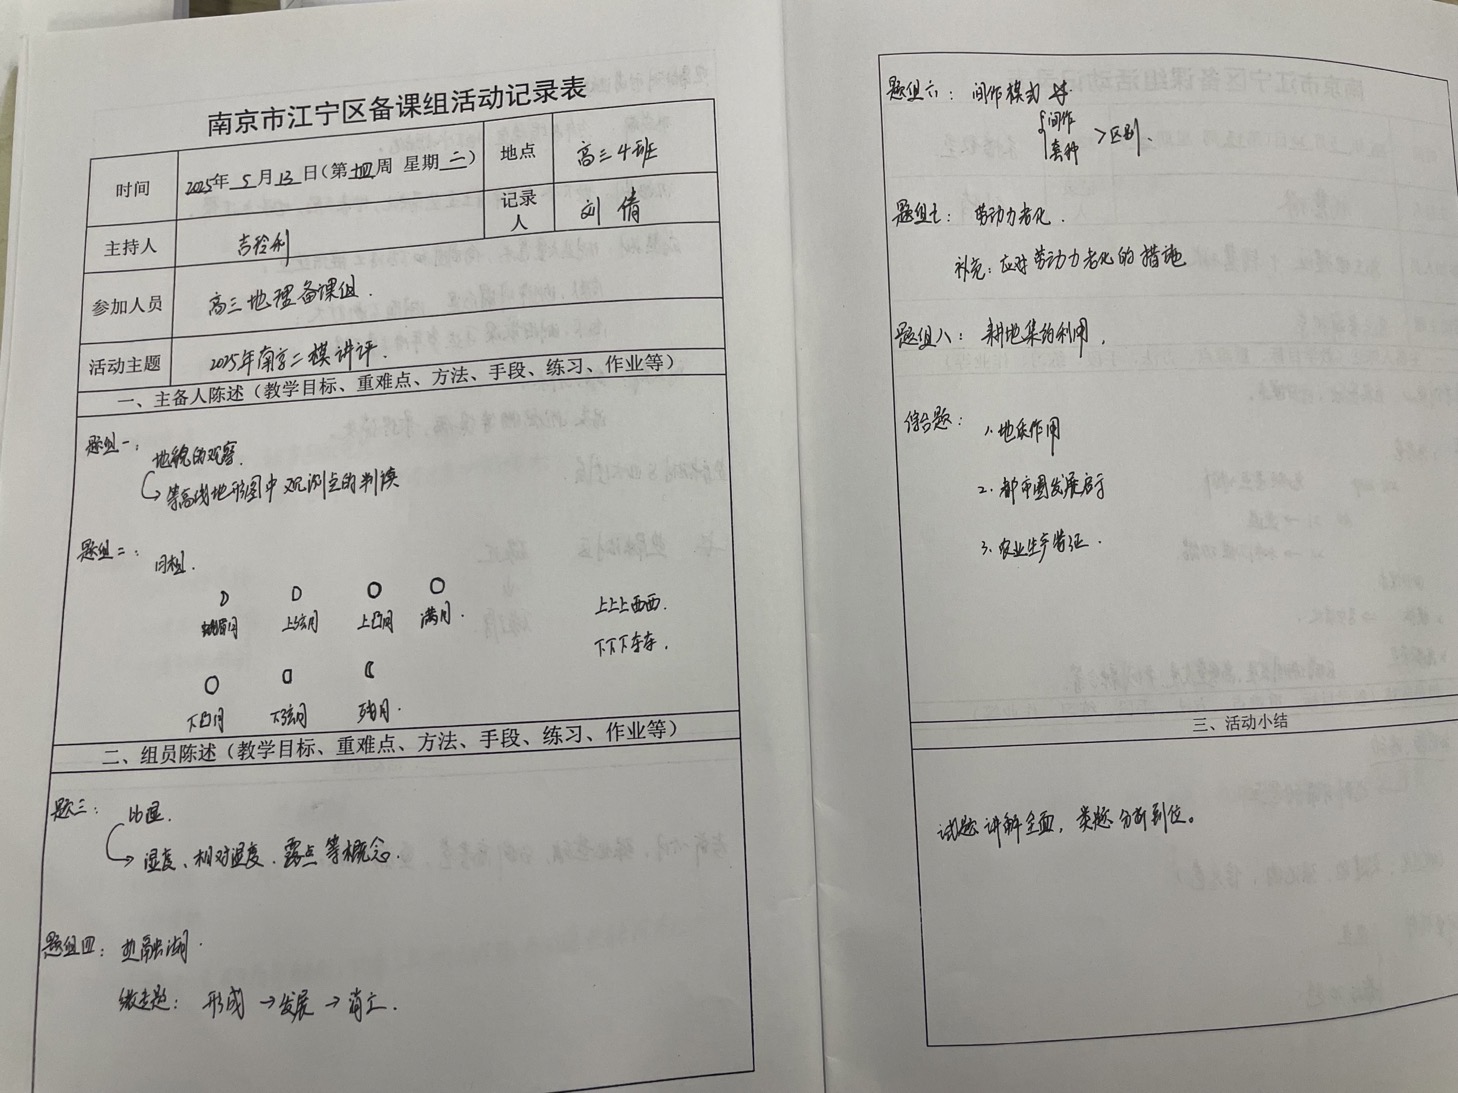 南京市江宁区备课组活动记录表
时间
2025年 5 月 13 日(第十四周 星期二)
地点
高三4班
主持人
记录人
刘倩
参加人员
高三地理备课组.
活动主题
2025年南京二模讲评.
一、主备人陈述（教学目标、重难点、方法、手段、练习、作业等）
题组一: 地貌的观察.
等高线地形图中观测点的判读
题组二: 月相.
蛾眉月 上弦月 上凸月 满月.
上上上西西.
下下下东东.
下凸月 下弦月 残月.
二、组员陈述（教学目标、重难点、方法、手段、练习、作业等）
题三: 比湿.
湿度、相对湿度、露点等概念.
题组四: 热融湖.
微专题: 形成→发展→消亡.
题组六: 间作模式
间作
套种
>区别.
题组七: 劳动力老化.
补充: 应对劳动力老化的措施
题组八: 耕地集约利用.
综合题: 1.地质作用
2.都市圈发展
3.农业生产特征.
三、活动小结
试题讲解全面，类题分析到位。